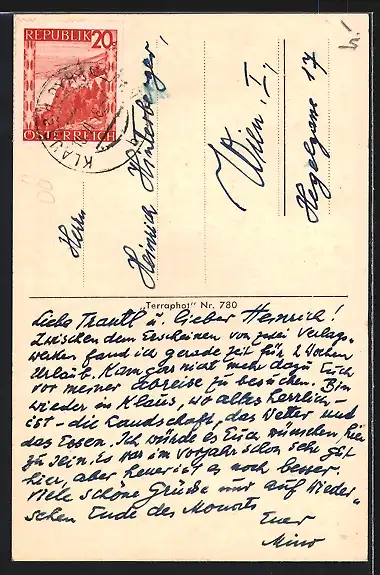 REPUBLIK 20g
ÖSTERREICH
KLAUS
Herrn
Heinrich Hinterberger,
Wien, I.,
Hegelgasse 17
"Terraphot" Nr. 780
Liebe Trautl u. lieber Heinrich!
Zwischen dem Erscheinen von zwei Verlags-
werken fand ich gerade Zeit für 2 Wochen
Urlaub. Kam gar nicht mehr dazu Euch
vor meiner Abreise zu besuchen. Bin
wieder in Klaus, wo alles herrlich
ist - die Landschaft, das Wetter und
das Essen. Ich würde es Euch wünschen, hier
zu sein. Es war im Vorjahr schon sehr gut
hier, aber heuer ist es noch besser.
Viele schöne Grüsse und auf Wieder-
sehen Ende des Monats
Euer